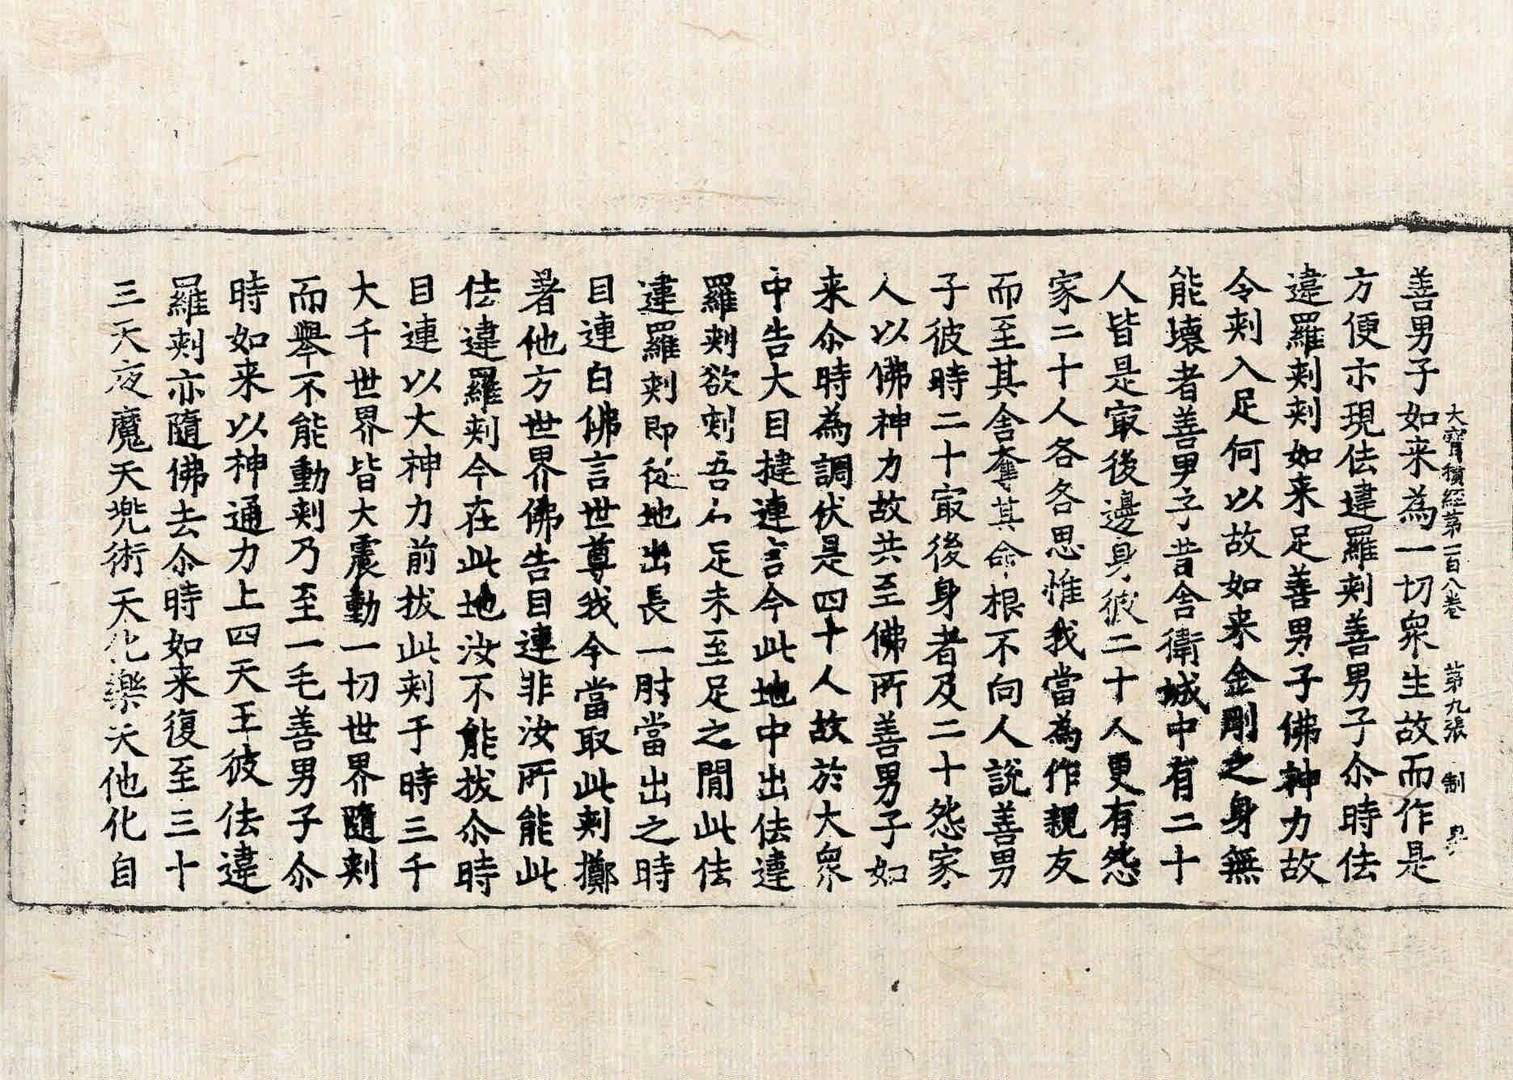 大寶積經第一百八卷　第九張　制
善男子如来為一切衆生故而作是
方便示現佉達羅刾善男子尒時佉
達羅刾刾如来足善男子佛神力故
令刾入足何以故如来金剛之身無
能壊者善男子昔舎衛城中有二十
人皆是寂後邊身彼二十人更有怨
家二十人各各思惟我當為作親友
而至其舎奪其命根不向人說善男
子彼時二十寂後身者及二十怨家
人以佛神力故共至佛所善男子如
来尒時為調伏是四十人故於大衆
中告大目揵連言今此地中出佉達
羅刾欲刾吾右足未至足之閒此佉
達羅刾即從地出長一肘當出之時
目連白佛言世尊我今當取此刾擲
著他方世界佛告目連非汝所能此
佉違羅刾今在此地汝不能拔尒時
目連以大神力前拔此刾于時三千
大千世界皆大震動一切世界隨刾
而舉不能動刾乃至一毛善男子尒
時如来以神通力上四天王彼佉違
羅刾亦隨佛去尒時如来復至三十
三天夜魔天兠術天化樂天他化自